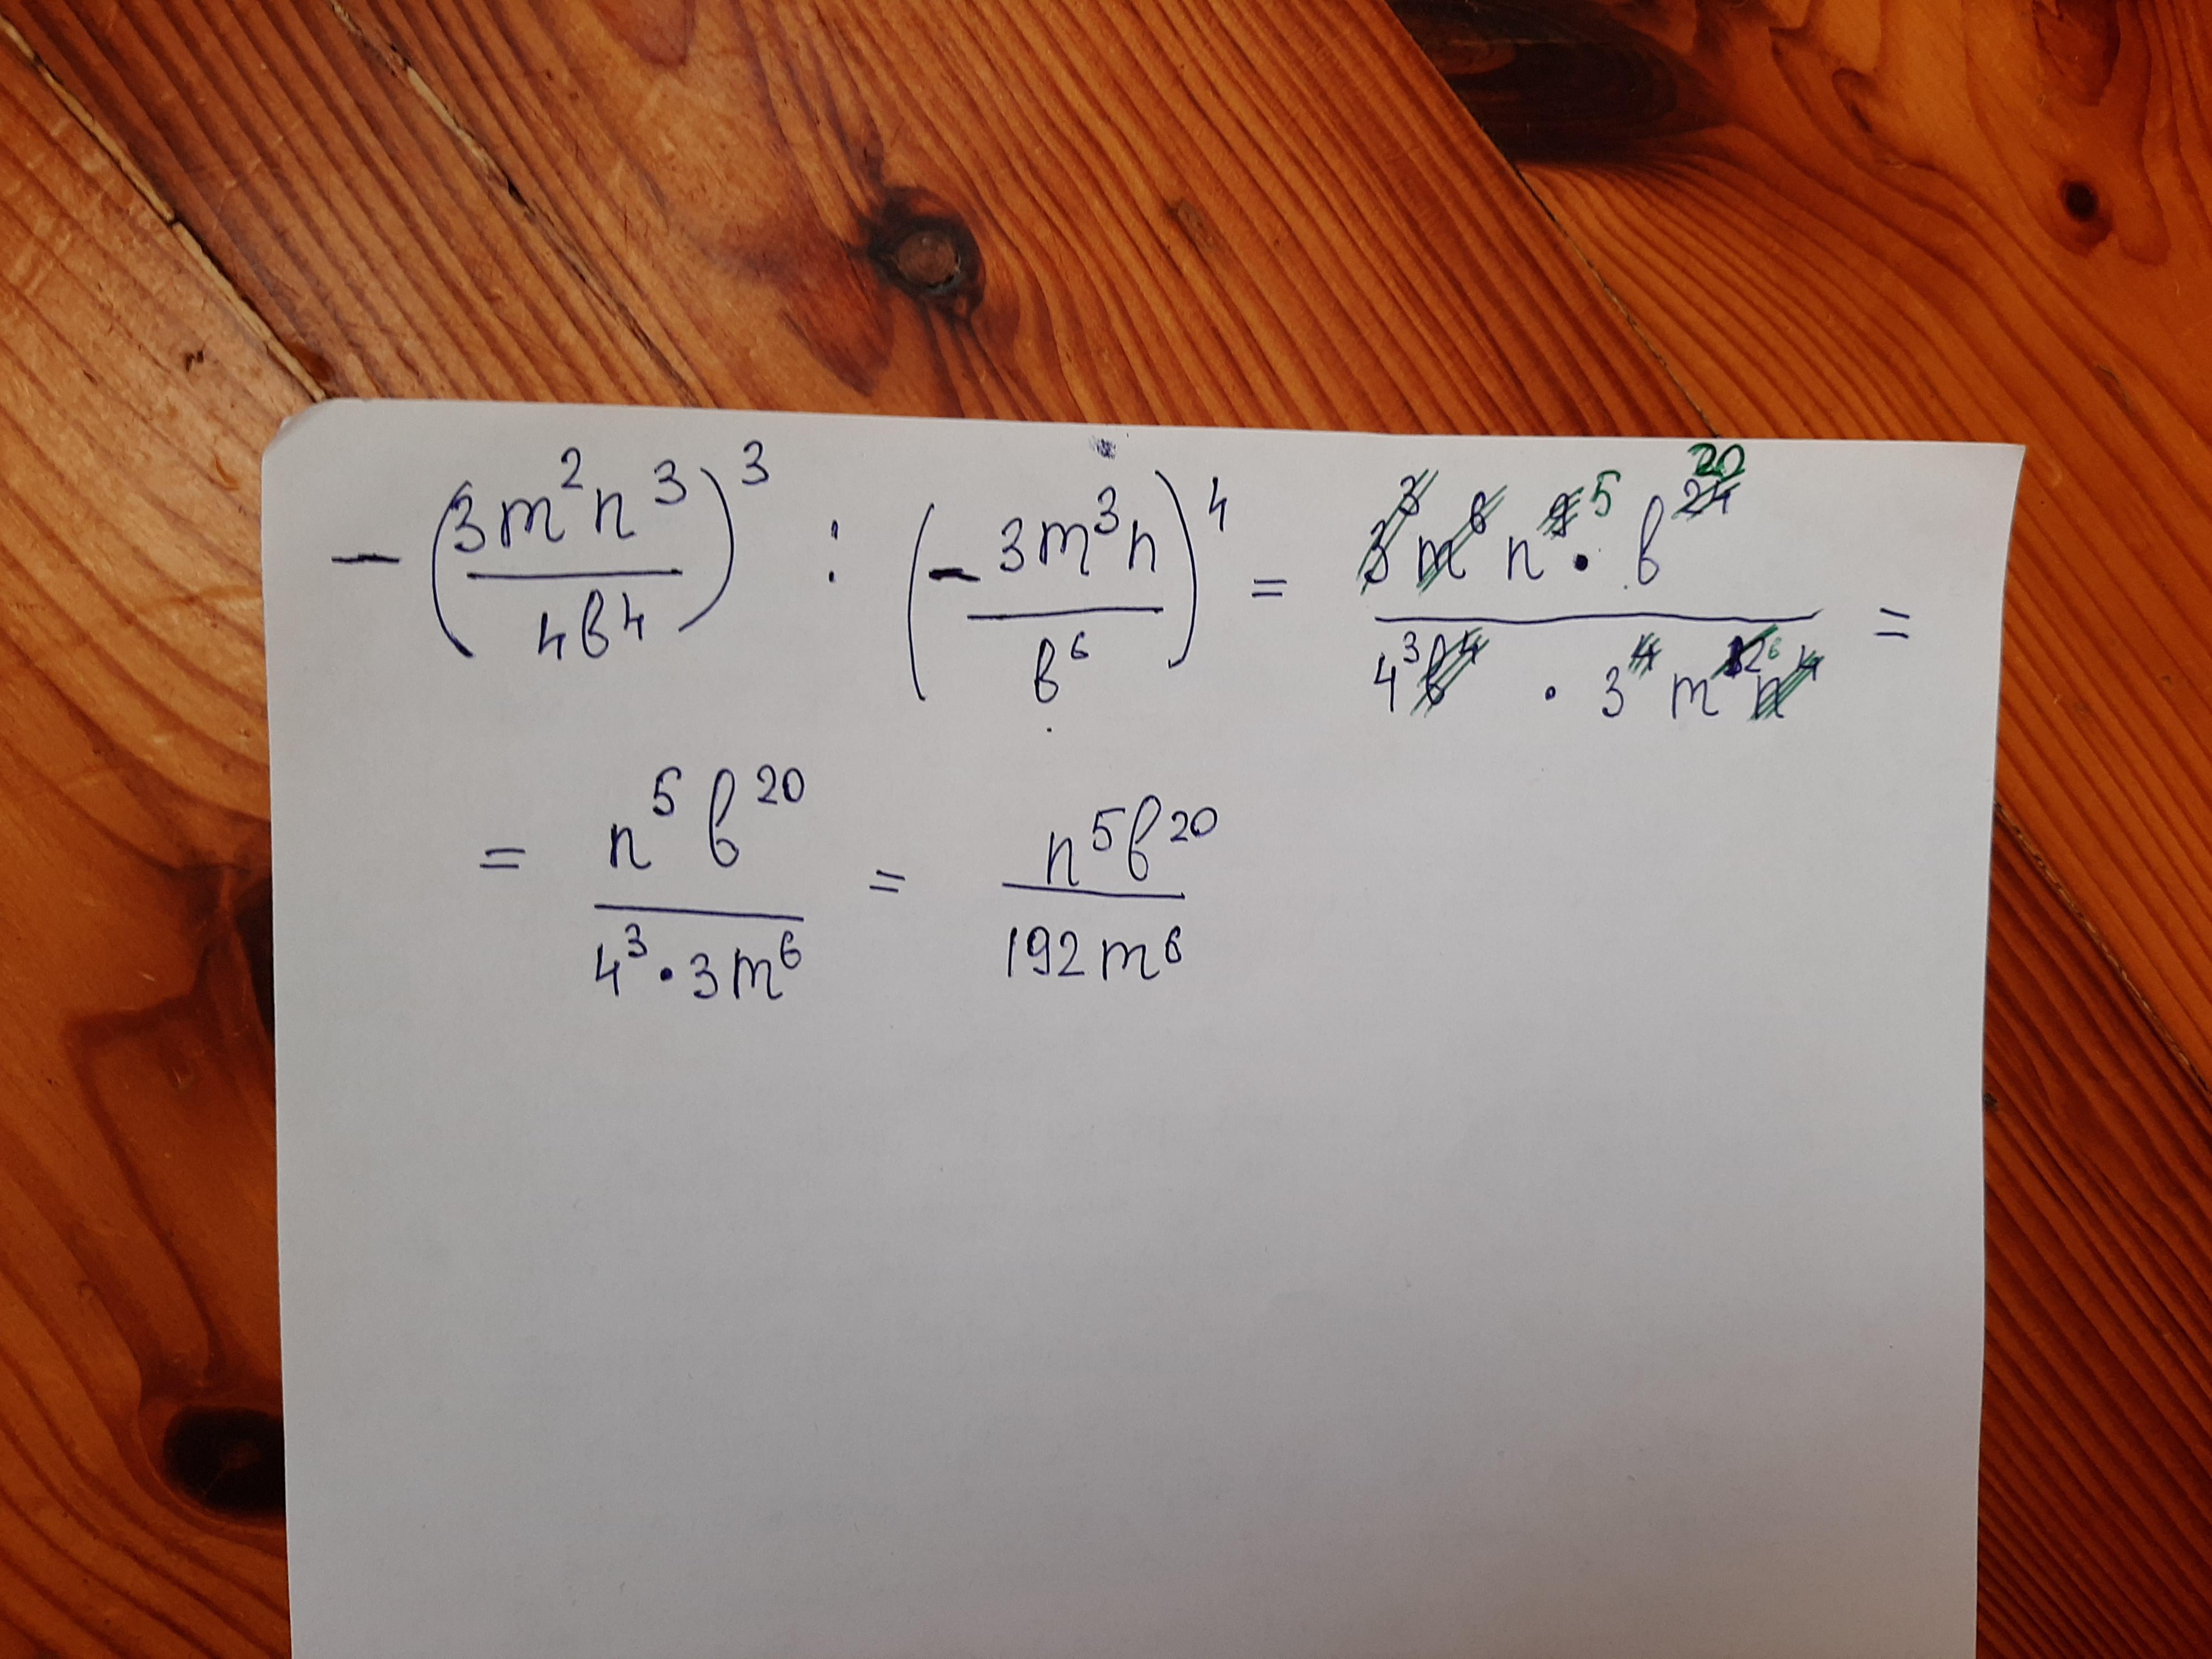 -(3m²n³/4b⁴)³ : (-3m³n/b⁶)⁴ = 3³m⁶n⁹⁵·b²⁴²⁰/4³b⁴·3⁴m¹²⁶n⁴ =
= n⁵b²⁰/4³·3m⁶ = n⁵b²⁰/192m⁶